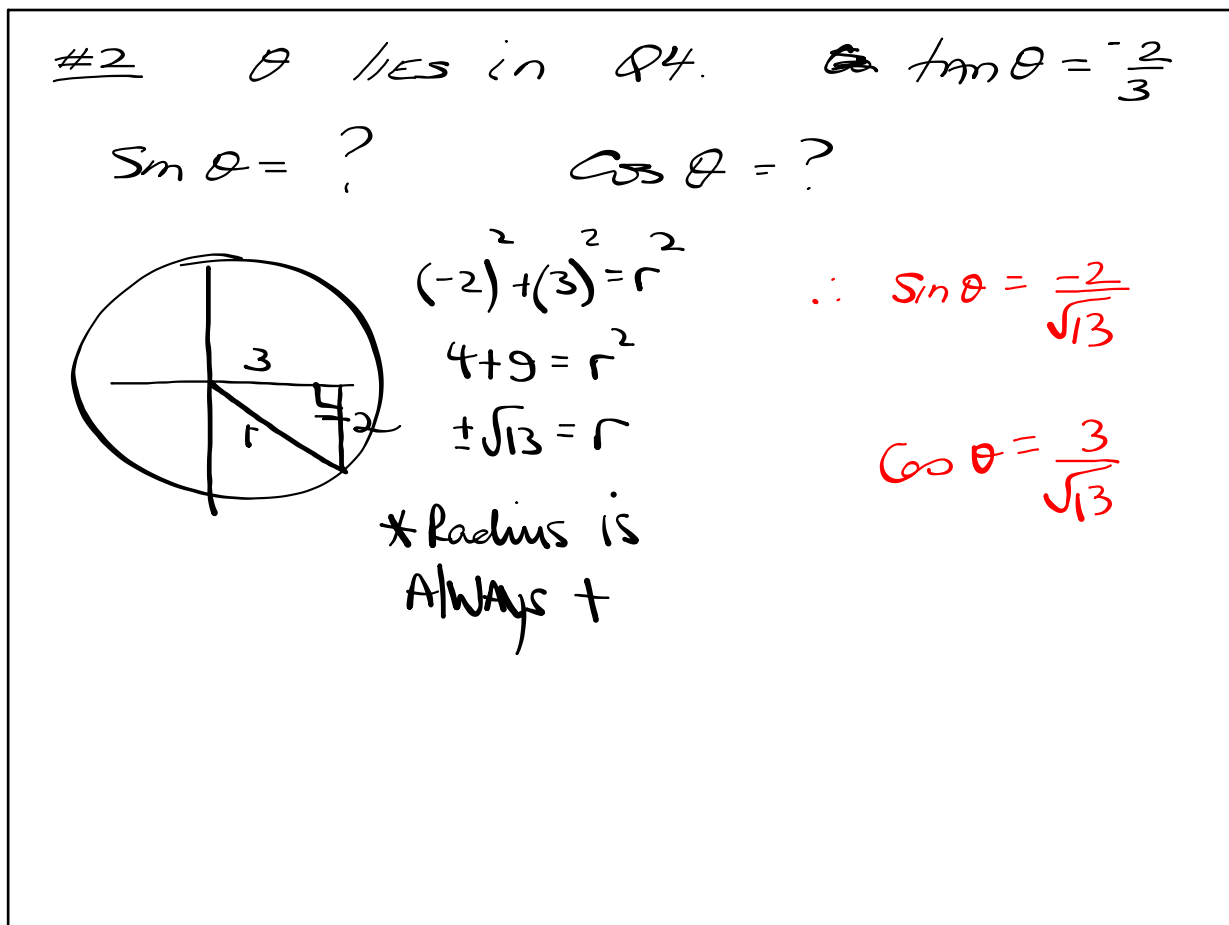 #2 θ lies in Q4. tan θ = -2/3
Sin θ = ? Cos θ = ?
(-2)² + (3)² = r²
4+9 = r²
±√13 = r
*Radius is
Always +
3
-2
r
∴ Sin θ = -2/√13
Cos θ = 3/√13